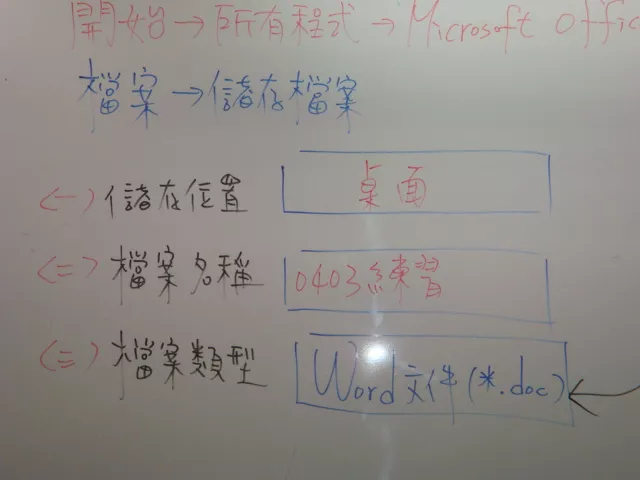 開始→所有程式→Microsoft Offic
檔案→儲存檔案
(一)儲存位置 桌面
(二)檔案名稱 0403練習
(三)檔案類型 Word文件(*.doc)